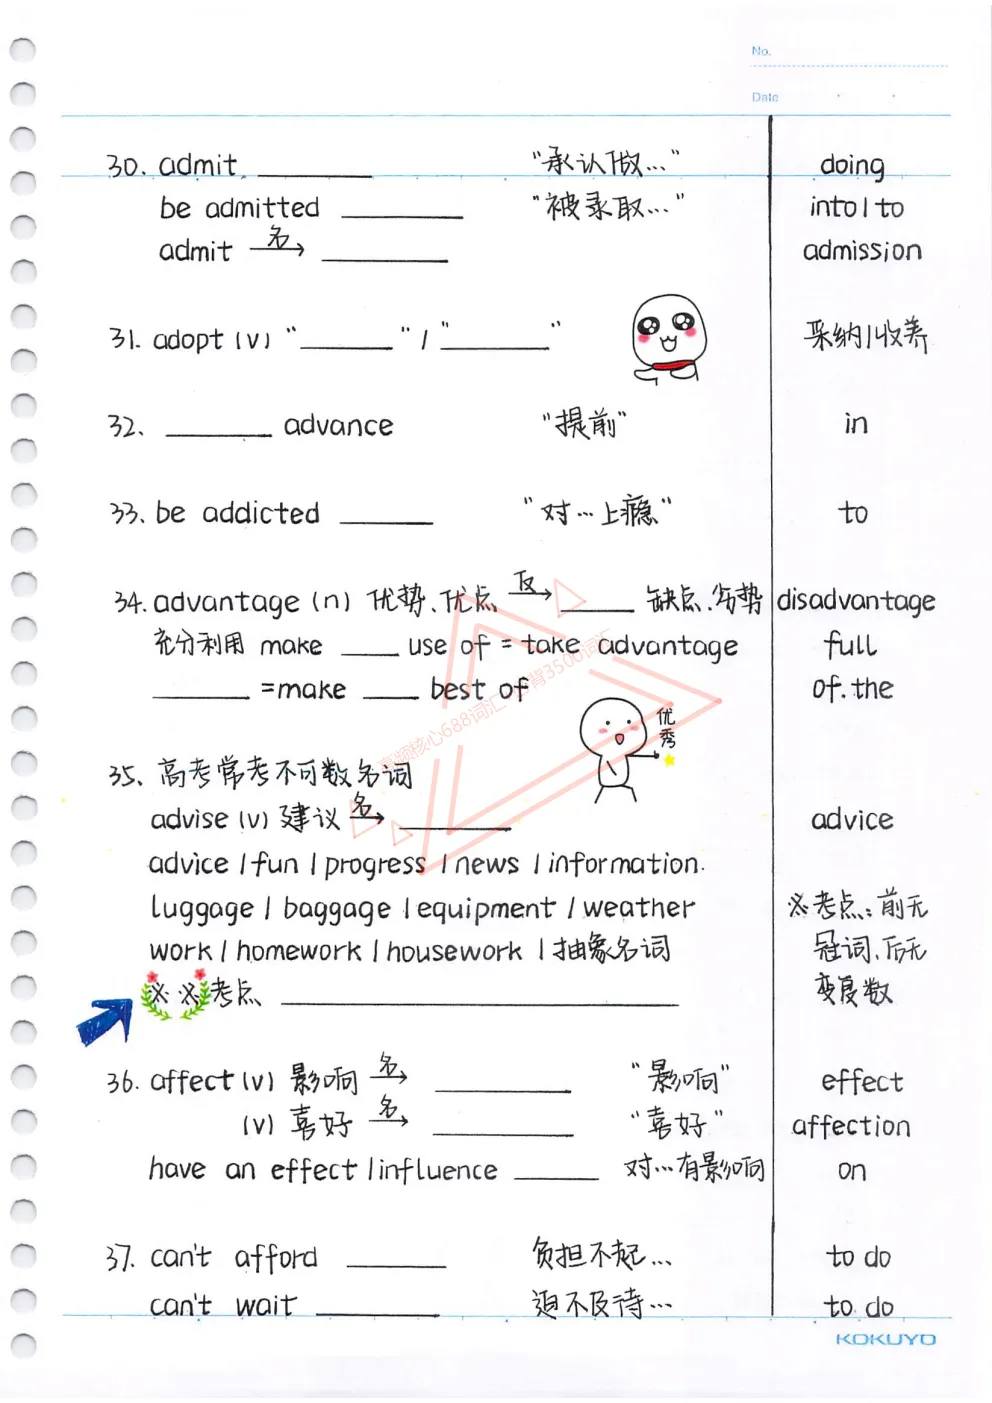 No.
Date
30. admit ________ "承认做…" doing
be admitted ________ "被录取…" into/to
admit 名→ ________ admission
31. adopt (v) "________" / "________" 采纳/收养
32. ________ advance "提前" in
33. be addicted ________ "对…上瘾" to
34. advantage (n) 优势、优点 反→ ______ 缺点、劣势 disadvantage
充分利用 make ____ use of = take advantage full
________ =make ____ best of of. the
优秀
35. 高考常考不可数名词
advise (v) 建议 名→ ________ advice
advice / fun / progress / news / information.
luggage / baggage / equipment / weather ※考点:前无
work / homework / housework / 抽象名词 冠词、后无
※ ※ 考点 ________________ 变复数
36. affect (v) 影响 名→ ________ "影响" effect
(v) 喜好 名→ ________ "喜好" affection
have an effect / influence ______ 对…有影响 on
37. can't afford ______ 负担不起… to do
can't wait ________ 迫不及待… to do
KOKUYO